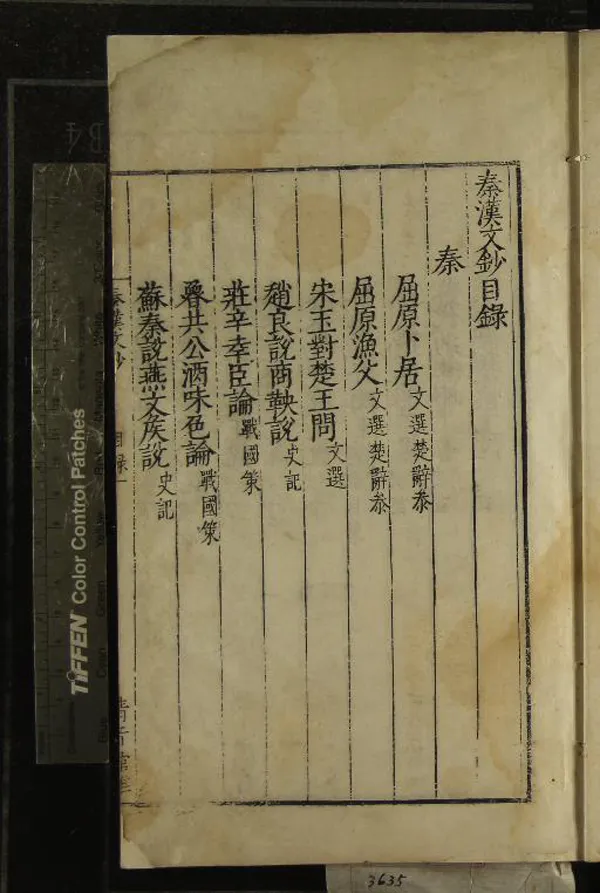 秦漢文鈔目錄
秦
屈原卜居 文選楚辭叅
屈原漁父 文選楚辭叅
宋玉對楚王問 文選
趙良說商鞅說 史記
莊辛幸臣論 戰國策
魯共公酒味色論 戰國策
蘇秦說燕文侯說 史記
秦漢文鈔 目錄 一
TIFFEN Color Control Patches
3635